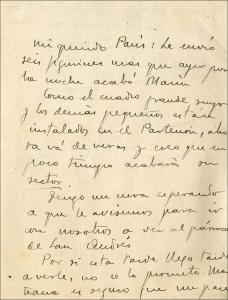 mi querido París: Le envío
seis figurines mas que ayer por
la noche acabó María
Como el cuadro grande suyo
y los demás pequeños están
instalados en el Partenón, aho
ra vá de veras y creo que en
poco tiempo acabará su
sector.
Tengo un cura esperando
a que le avisemos para ir
con nosotros a ver al párroco
de San Andrés
Por si esta tarde llego tarde
a verle, no se lo prometo. Ma
ñana es seguro que me pase